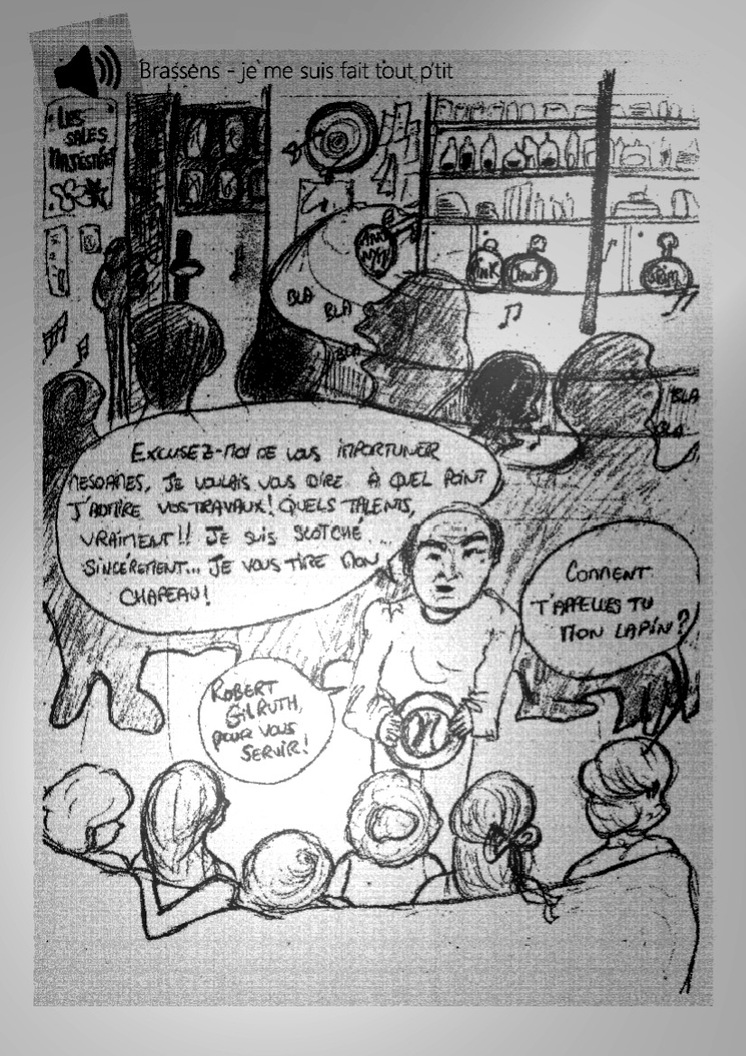 Brassens - je me suis fait tout p'tit
LES
SALES
MAJESTÉS
BLA
BLA
BLA
BLA
BLA
EXCUSEZ-MOI DE VOUS IMPORTUNER
MESDAMES, JE VOULAIS VOUS DIRE À QUEL POINT
J'ADMIRE VOS TRAVAUX! QUELS TALENTS,
VRAIMENT!! JE SUIS SCOTCHÉ...
SINCÈREMENT... JE VOUS TIRE MON
CHAPEAU!
COMMENT
T'APPELLES TU
MON LAPIN?
ROBERT
GILRUTH,
POUR VOUS
SERVIR!